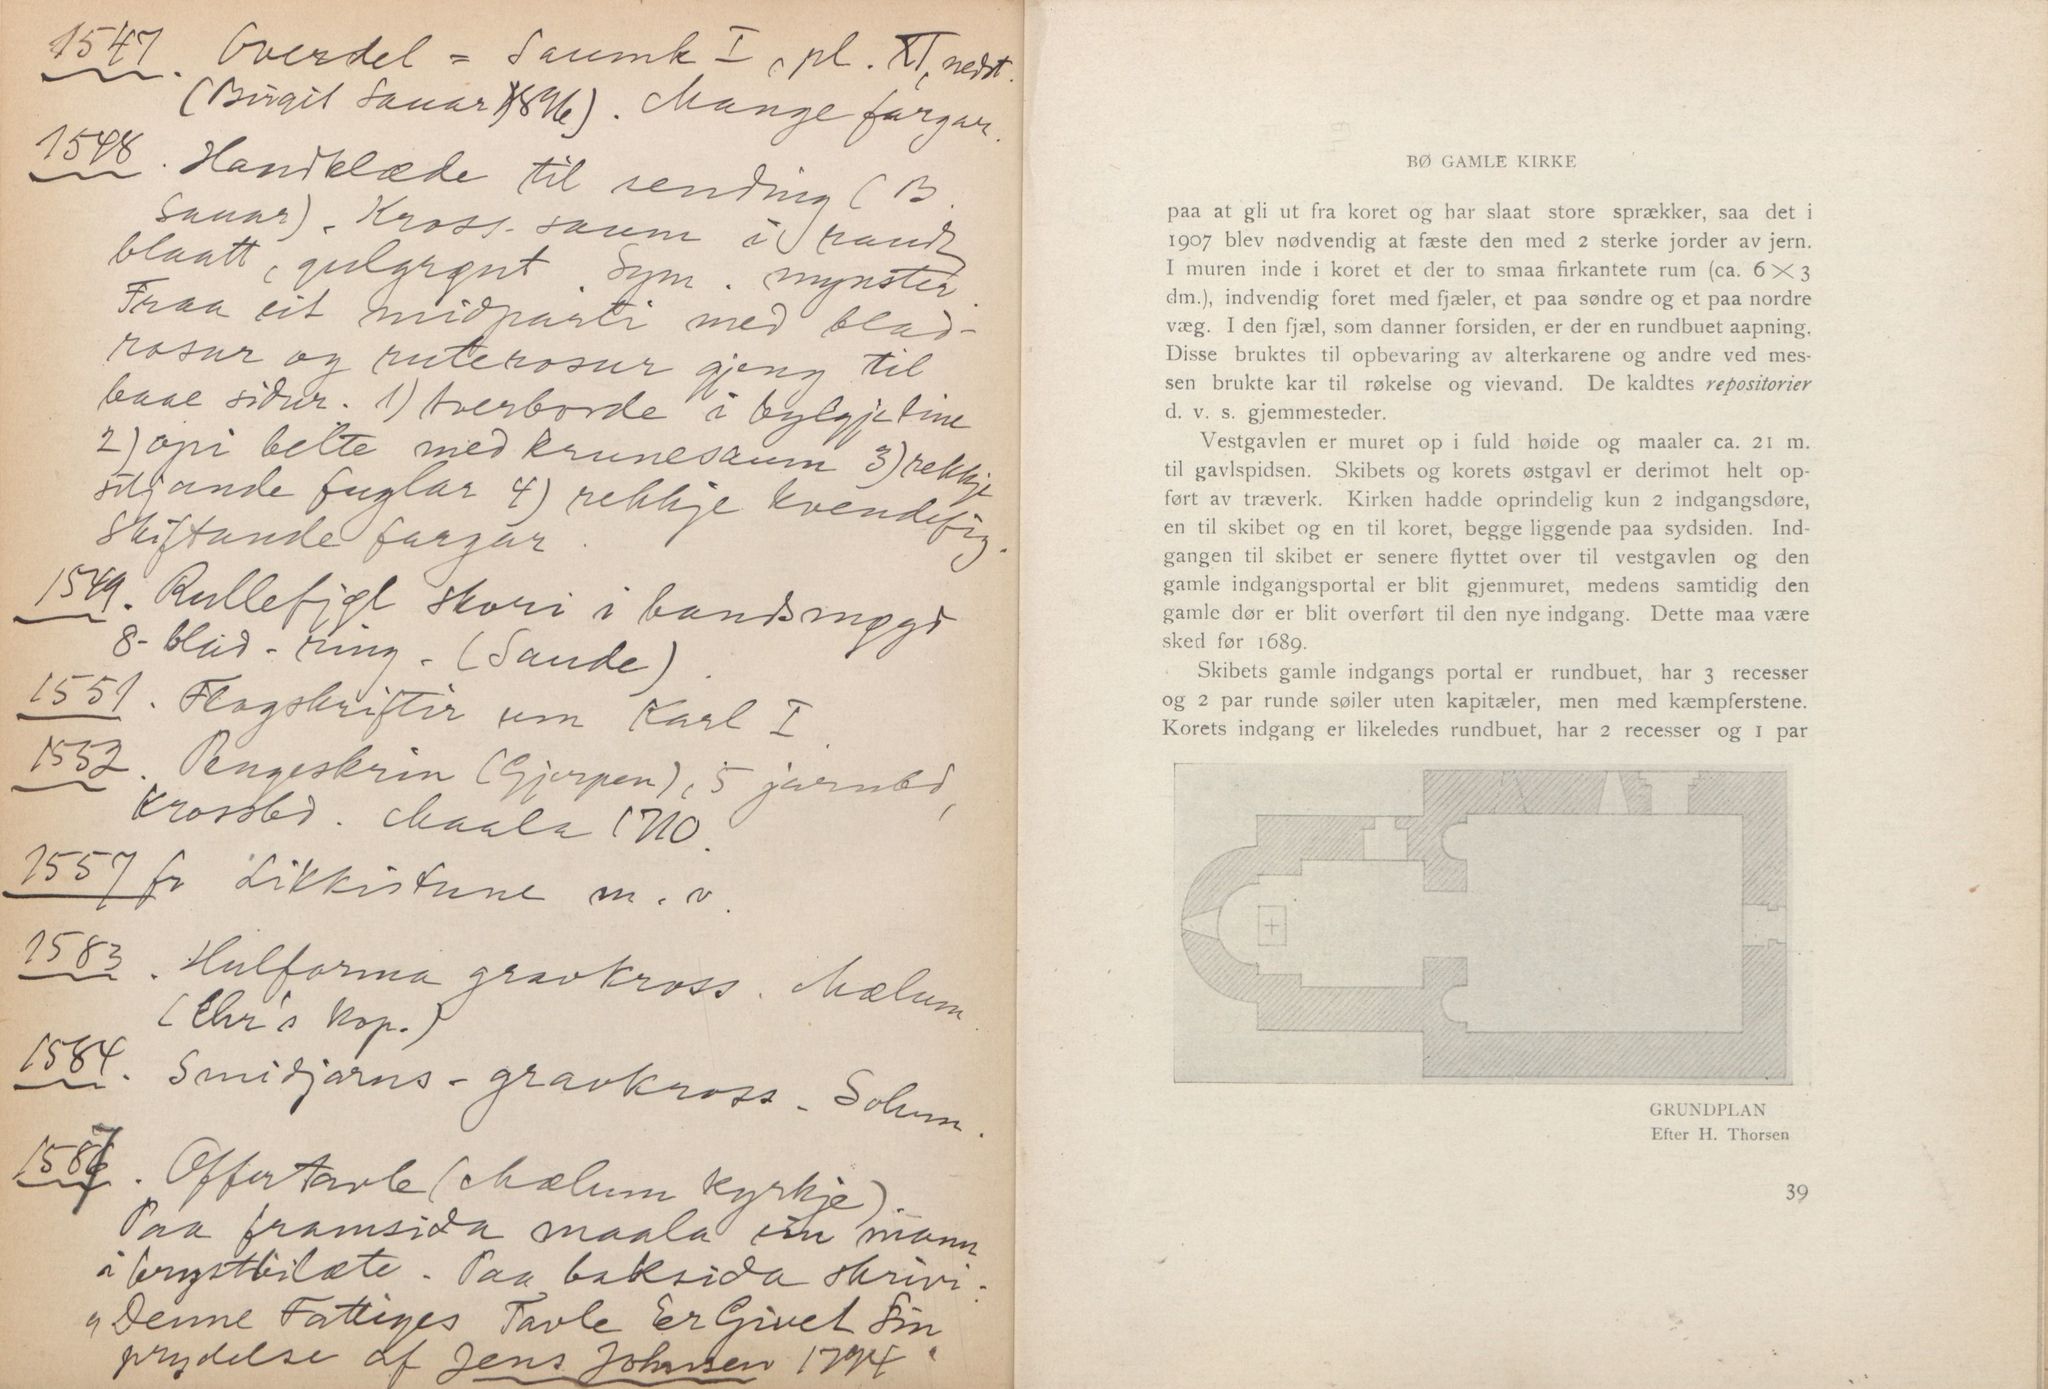 1547. Overdel = Saumk I, pl. XI, nedst.
(Birgit Sauar 1896). Mange fargar.
1548. Handklæde til sending (B.
Sauar). Kross-saum i raudt,
blaatt, gulgrønt. Sym. mynster.
Fraa eit midparti med blad-
rosur og ruterosur gjeng til
baae sidur. 1) tverborde i bylgjeline
2) opi belte med krunesaum 3) rekkje
sitjande fuglar 4) rekkje kvendefig.
Skiftande fargar.
1549. Rullefjøl skori i bandsmøgd
8-blad-ring. (Sande).
1551. Flogskriftir um Karl I.
1552. Pengeskrin (Gjerpen), 5 jarnbd,
krossbd. Maala 1710.
1557 fr Likkistune m. v.
1583. Hulforma gravkross. Mælum
(Chr's kop.)
1584. Smidjarns-gravkross. Solum.
1587. Offertavle (Mælum kyrkje)
Paa framsida maala ein mann
i brystbilæte. Paa baksida skrivi.
"Denne Fattiges Tavle Er Givet Sin
prydelse af Jens Johnsen 1794"
BØ GAMLE KIRKE
paa at gli ut fra koret og har slaat store sprækker, saa det i
1907 blev nødvendig at fæste den med 2 sterke jorder av jern.
I muren inde i koret et der to smaa firkantete rum (ca. 6 × 3
dm.), indvendig foret med fjæler, et paa søndre og et paa nordre
væg. I den fjæl, som danner forsiden, er der en rundbuet aapning.
Disse bruktes til opbevaring av alterkarene og andre ved mes-
sen brukte kar til røkelse og vievand. De kaldtes repositorier
d. v. s. gjemmesteder.
Vestgavlen er muret op i fuld høide og maaler ca. 21 m.
til gavlspidsen. Skibets og korets østgavl er derimot helt op-
ført av træverk. Kirken hadde oprindelig kun 2 indgangsdøre,
en til skibet og en til koret, begge liggende paa sydsiden. Ind-
gangen til skibet er senere flyttet over til vestgavlen og den
gamle indgangsportal er blit gjenmuret, medens samtidig den
gamle dør er blit overført til den nye indgang. Dette maa være
sked før 1689.
Skibets gamle indgangs portal er rundbuet, har 3 recesser
og 2 par runde søiler uten kapitæler, men med kæmpferstene.
Korets indgang er likeledes rundbuet, har 2 recesser og 1 par
GRUNDPLAN
Efter H. Thorsen
39